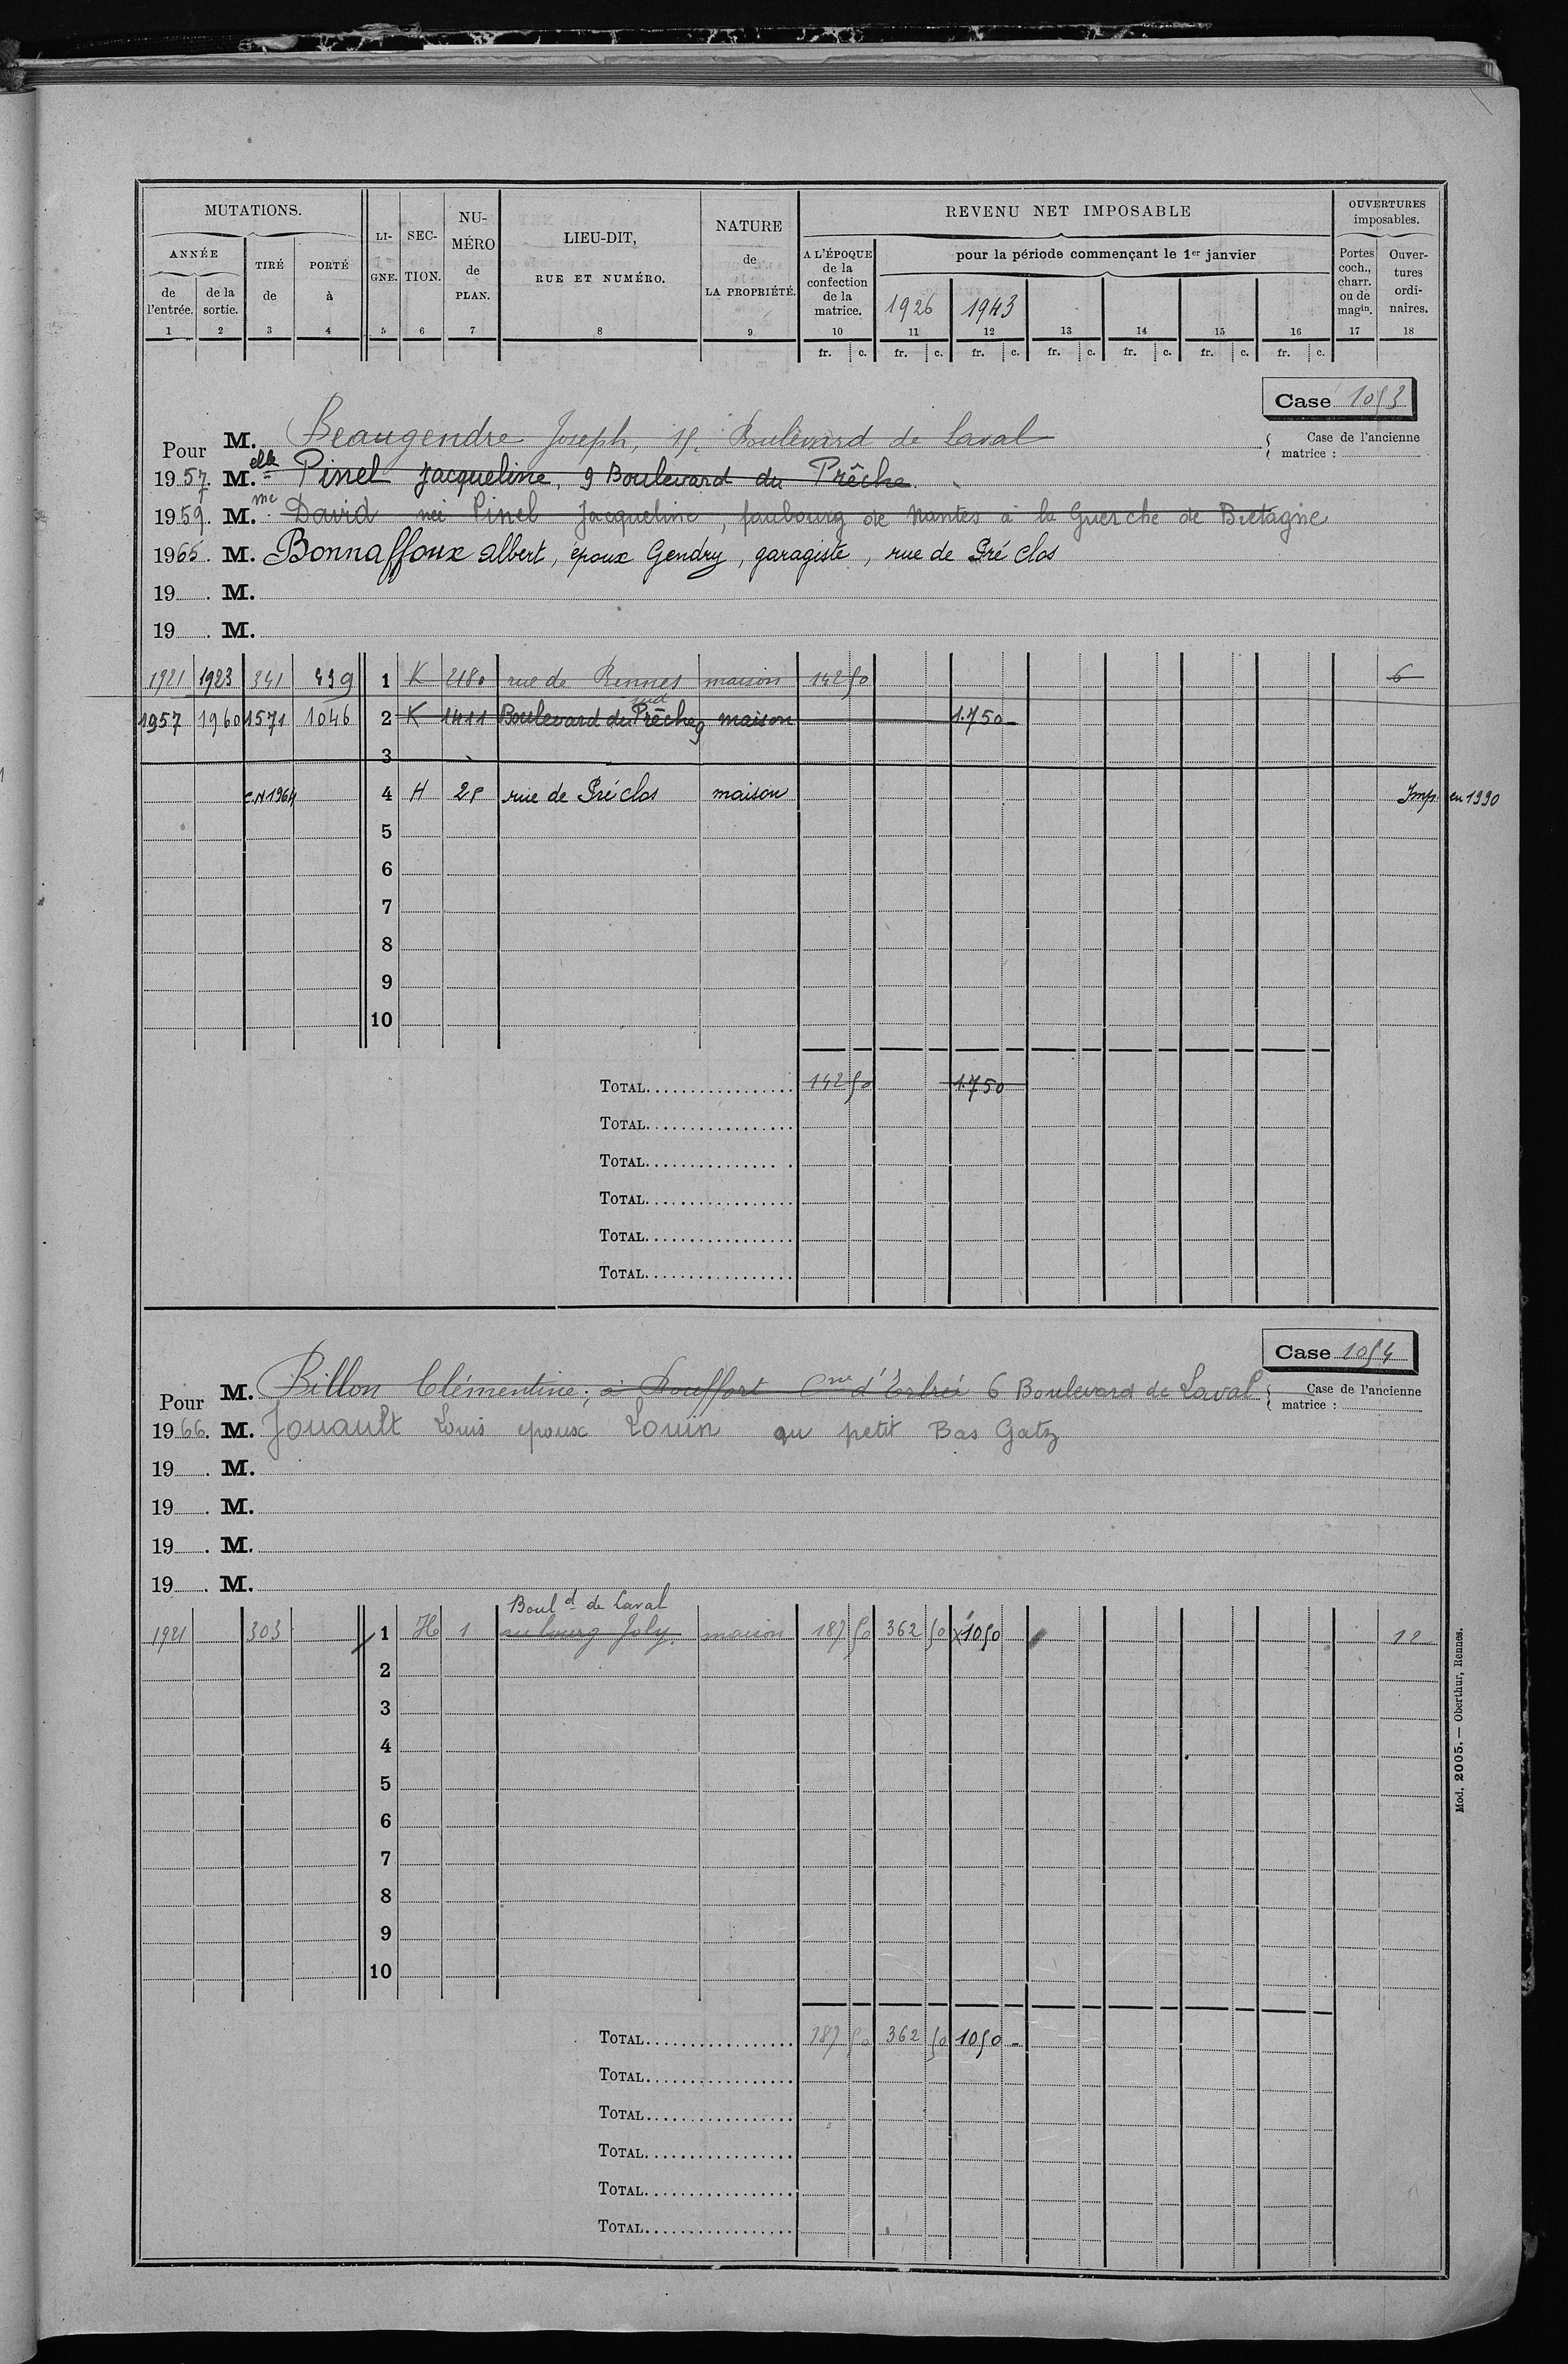 MUTATIONS. LI-GNE. SEC-TION. NU-MÉRO de PLAN. LIEU-DIT, RUE ET NUMÉRO. NATURE de LA PROPRIÉTÉ. REVENU NET IMPOSABLE OUVERTURES imposables.
ANNÉE TIRÉ de PORTÉ à A L'ÉPOQUE de la confection de la matrice. pour la période commençant le 1er janvier Portes coch., charr. ou de magin. Ouver-tures ordi-naires.
de l'entrée. de la sortie. 1926 1943
1 2 3 4 5 6 7 8 9 10 11 12 13 14 15 16 17 18
fr. c. fr. c. fr. c. fr. c. fr. c. fr. c. fr. c.
Case 1053
Pour M. Beaugendre Joseph, 15, Boulevard de Laval
Case de l'ancienne matrice :
1957. M.elle Pinel Jacqueline, 9 Boulevard du Prêche
1959. M.me David née Pinel Jacqueline, faubourg de Nantes à la Guerche de Bretagne
1965. M. Bonnaffoux Albert, époux Gendry, garagiste, rue de Pré Clos
19 . M.
19 . M.
1921 1923 341 439 1 K 2180 rue de Rennes maison 142 50 6
1957 1960 1571 1046 2 K 1411 Boulevard du Prêche 9 maison 1.750-
3
C.N 1964 4 H 25 rue de Pré clos maison Imp. en 1990
5
6
7
8
9
10
TOTAL 142 50 1.750
TOTAL
TOTAL
TOTAL
TOTAL
TOTAL
Case 1054
Pour M. Billon Clémentine, à Rouffort Cne d'Erbrée 6 Boulevard de Laval
Case de l'ancienne matrice :
1966. M. Jouault Louis epoux Louin au petit Bas Gatz
19 . M.
19 . M.
19 . M.
19 . M.
Bould de Laval
1921 303 1 H 1 au bourg Joly maison 187 50 362 50 x1050 12
2
3
4
5
6
7
8
9
10
TOTAL 187 50 362 50 1050-
TOTAL
TOTAL
TOTAL
TOTAL
TOTAL
Mod. 2005. — Oberthur, Rennes.